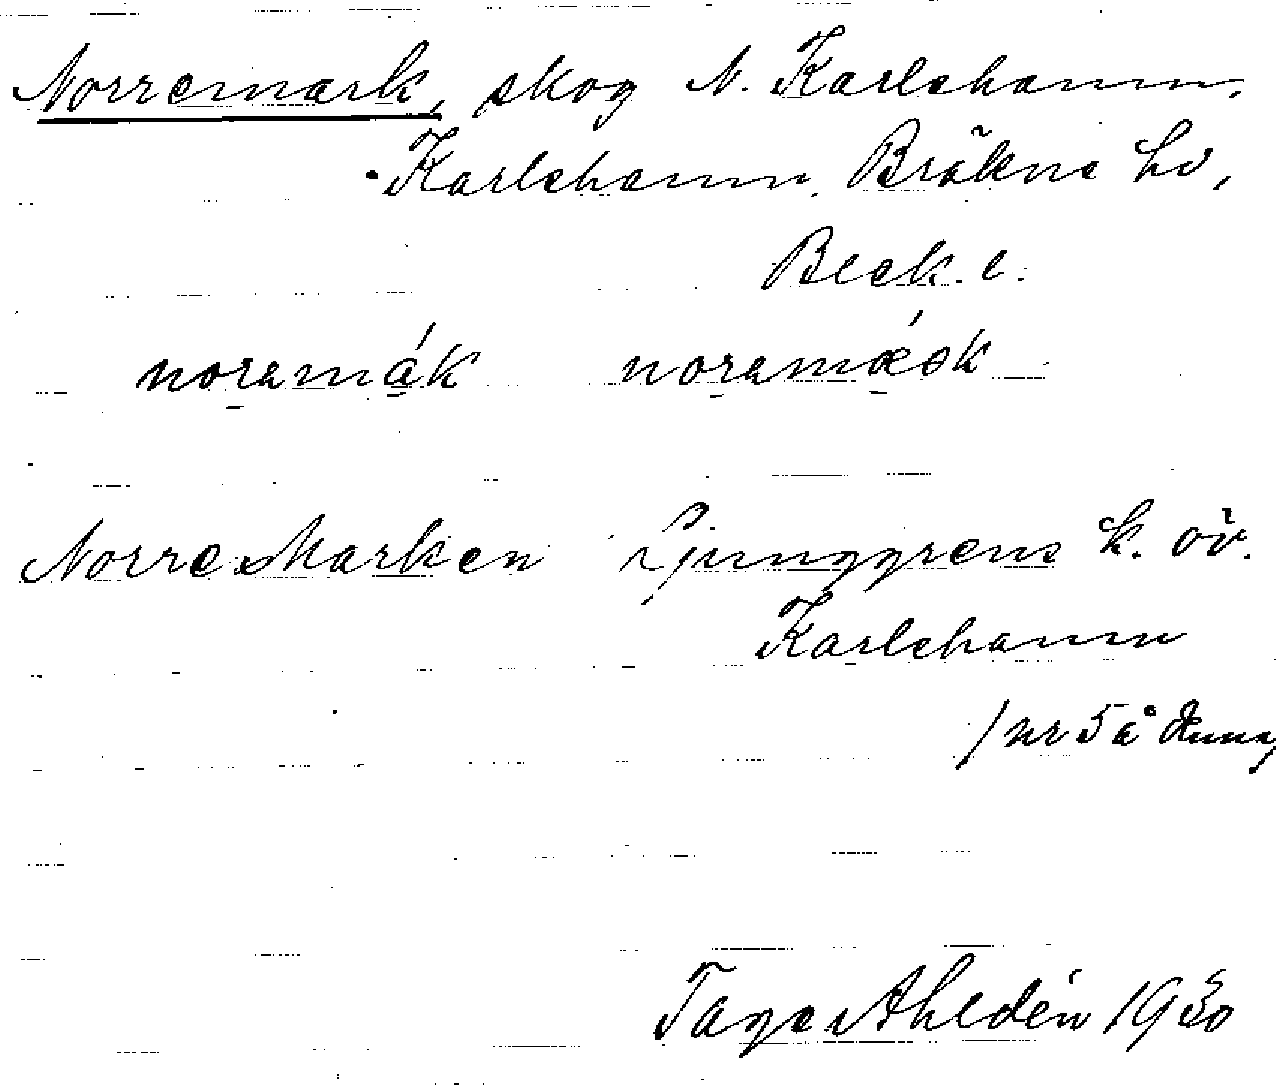 Norremark, skog N. Karlshamn,
Karlshamn, Bräkne hd,
Blek. l.
noramák noramáok
Norre Marken Ljunggrens k. öv.
Karlshamn
/nr 5 å
Tage Ahldén 1930